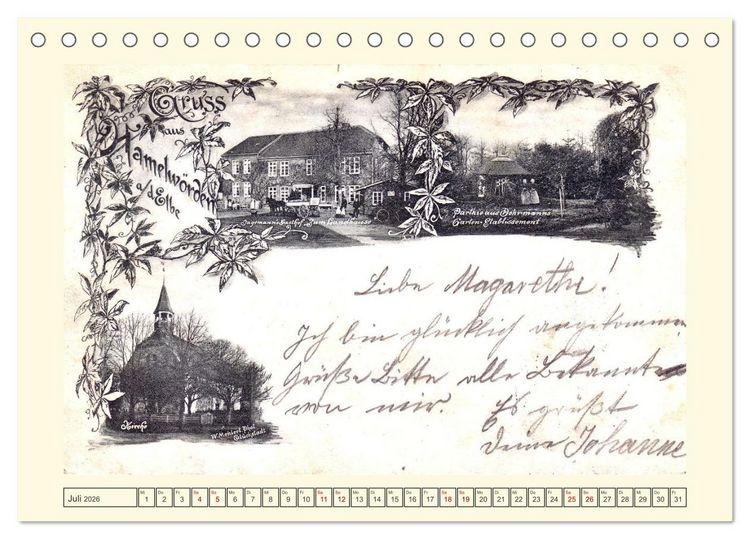 Gruss
aus
Hamelwörden
a/Elbe
Zum Landhause
Parthie aus Bohrmanns
Garten-Etablissement
Liebe Magarethe!
Ich bin glücklich angekommen
Grüße Bitte alle Bekannte
von mir. Es grüßt
Deine Johanne
Kirche
Glückstadt
Juli 2026
Mi Do Fr Sa So Mo Di Mi Do Fr Sa So Mo Di Mi Do Fr Sa So Mo Di Mi Do Fr Sa So Mo Di Mi Do Fr
1 2 3 4 5 6 7 8 9 10 11 12 13 14 15 16 17 18 19 20 21 22 23 24 25 26 27 28 29 30 31